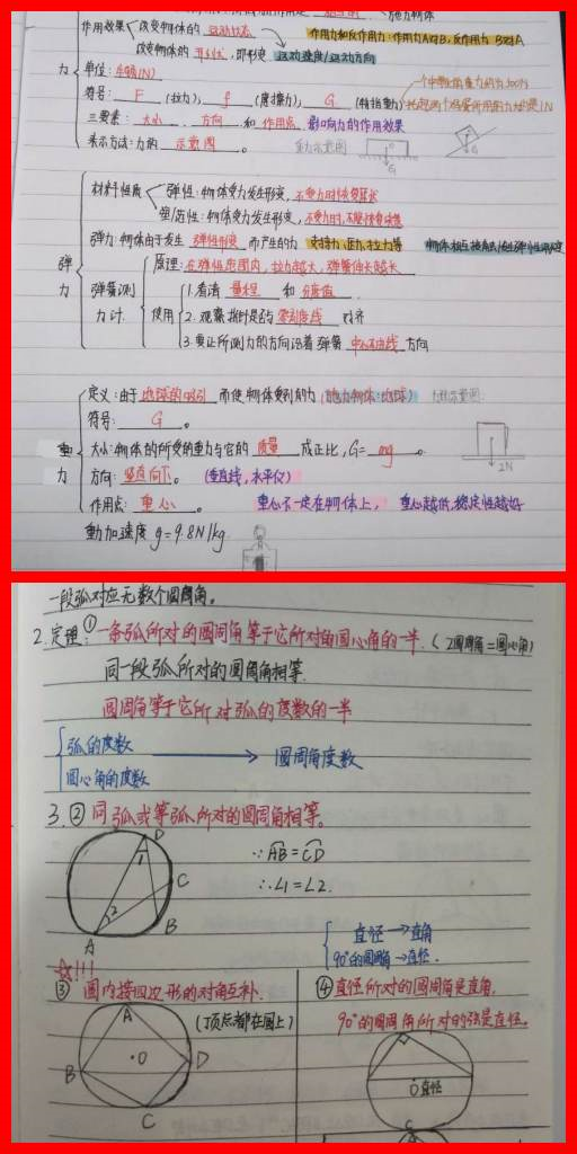 作用效果 改变物体的 运动状态 作用力和反作用力:作用力A对B,反作用力 B对A
改变物体的 形状,即形变 运动速度/运动方向
力 单位:牛顿(N)
符号: F (拉力)、 f (摩擦力)、 G (特指重力)
三要素: 大小、方向 和 作用点 影响力的作用效果
表示方法:力的 示意图 。 重力示意图
材料性质 弹性:物体受力发生形变,不受力时恢复原状
塑/范性:物体受力发生形变,不受力时,不能恢复
弹力:物体由于发生 弹性形变 而产生的力 支持力、压力、拉力等
弹力 原理:在弹性范围内,拉力越大,弹簧伸长越长
弹簧测力计 使用 1.看清 量程 和 分度值 .
2.观察指针是否与 零刻度线 对齐
3.要让所测力的方向沿着弹簧 中心轴线 方向
定义:由于 地球的吸引 而使物体受到的力 (施力物体:地球) 力的示意图:
符号: G 。
重力 大小:物体的所受的重力与它的 质量 成正比,G= mg 。
2N
方向: 竖直向下。 (重垂线,水平仪)
作用点: 重心 。 重心不一定在物体上, 重心越低,稳定性越好
重力加速度 g=9.8N/kg
一段弧对应无数个圆周角。
2.定理:①一条弧所对的圆周角等于它所对的圆心角的一半.(2圆周角=圆心角)
同一段弧所对的圆周角相等.
圆周角等于它所对弧的度数的一半
弧的度数
圆心角的度数 → 圆周角度数
3.②同弧或等弧所对的圆周角相等。
D
1 ∵AB=CD
C ∴∠1=∠2.
2
B
A
直径→直角
90°的圆周角→直径.
☆!!!
③圆内接四边形的对角互补.
④直径所对的圆周角是直角.
A (顶点都在圆上)
90°的圆周角所对的弦是直径.
·O D
B
O 直径
C